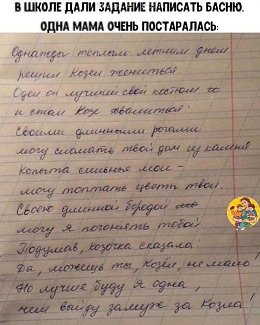 В ШКОЛЕ ДАЛИ ЗАДАНИЕ НАПИСАТЬ БАСНЮ.
ОДНА МАМА ОЧЕНЬ ПОСТАРАЛАСЬ:
Однажды теплым летним днем
решил Козел жениться
Одел он лучший свой костюм
и стал Козе хвалиться:
Своими длинными рогами
могу сломать твой дом из камня
Копыта сильные мои -
могу топтать цветы твои.
Своею длинной бородой
могу я погонять тобой
Подумав, козочка сказала:
Да, можешь ты, Козёл, не мало!
Но лучше буду я одна,
чем выйду замуж за Козла!